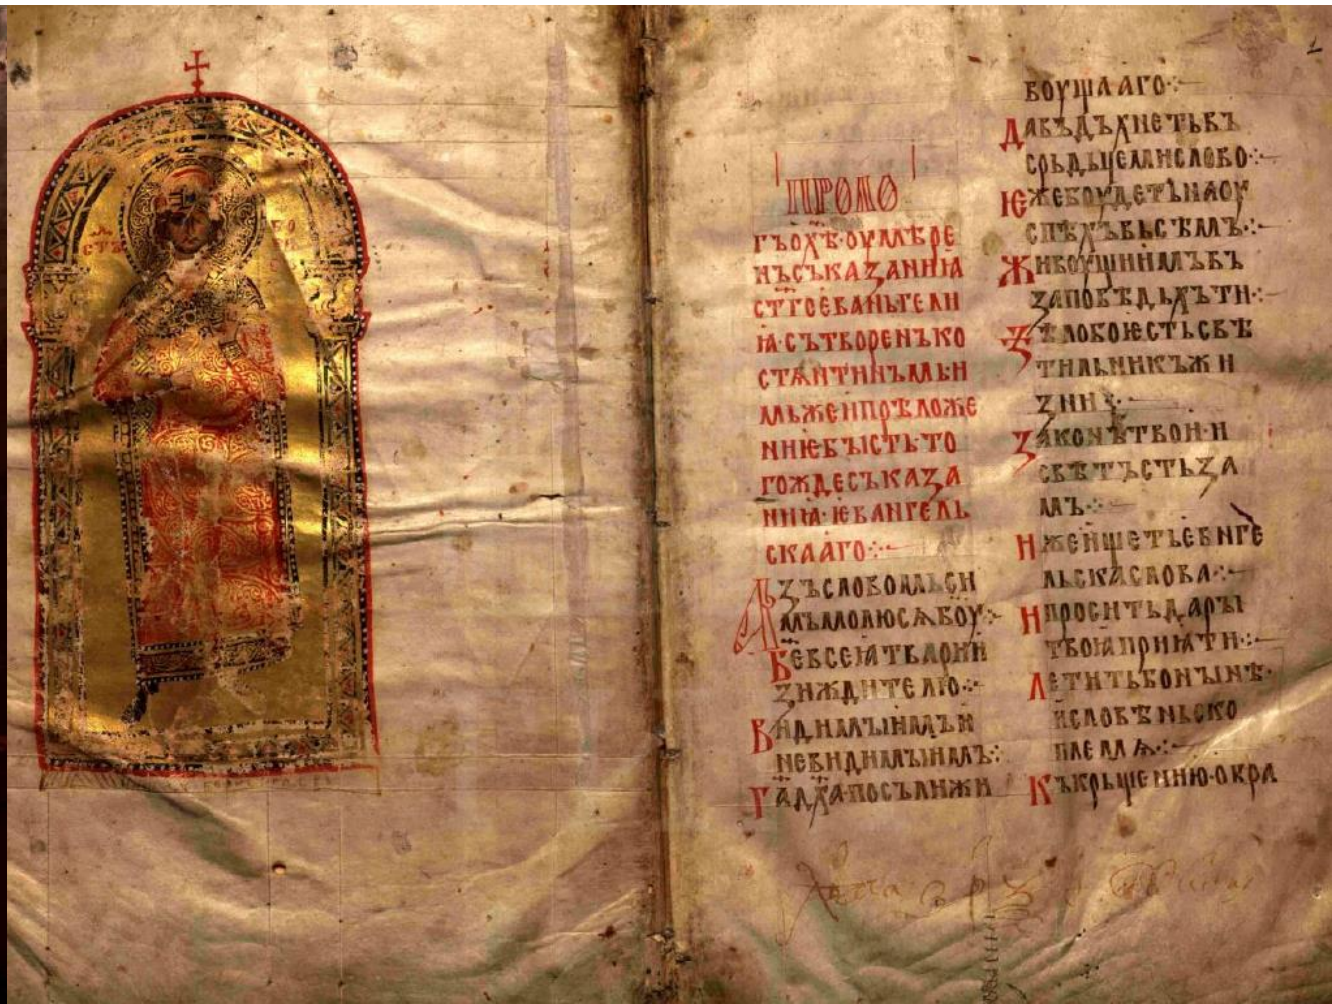 ПРОЛО
ГЪОХ҃Ѣ·ОУМѢРЕ
НЪСЪКАЗАНИꙖ
СТ҃ГОЕВАНЬГЕЛИ
Ꙗ·СЪТВОРЕНЪКО
СТѦНТИНЪМЬИ
МЬЖЕИПРѢЛОЖЕ
НИѤБЫСТЬ·ТО
ГОЖДЕСЪКАЗА
НИꙖ·ѤВАНГЕЛЬ
СКААГО:~
АЗЪСЛОВОМЬСИ
МЬМОЛЮСѦБОУ:
БЕВСЕꙖТВАРИИ
ЗИЖДИТЕЛЮ:~
ВИДИМЫИМЪИ
НЕВИДИМЫИМЪ:
ГАДХ҃А·ПОСЪЛИЖИ
ВОУЩААГО:~
ДАВЪДЪХНЕТЬВЪ
СРЬДЬЦЕМИСЛОВО:~
ѤЖЕБОУДЕТЬНАОУ
СПѢХЪВЬСѢМЪ:~
ЖИВОУЩИИМЪВЪ
ЗАПОВѢДЬХЪТИ:~
ЅѢЛОБОѤСТЬСВѢ
ТИЛЬНИКЪЖИ
ЗНИ:~
ЗАКОНЪТВОИ·И
СВѢТЪСТЬЗА
МЪ:~
ИЖЕИЩЕТЬЕВНГЕ
ЛЬСКАСЛОВА:~
ИПРОСИТЬДАРЫ
ТВОꙖПРИꙖТИ:~
ЛЕТИТЬБОНЫНѢ·
ИСЛОВѢНЬСКО
ПЛЕМѦ:~
КЪКРЬЩЕНИЮ·ОБРА